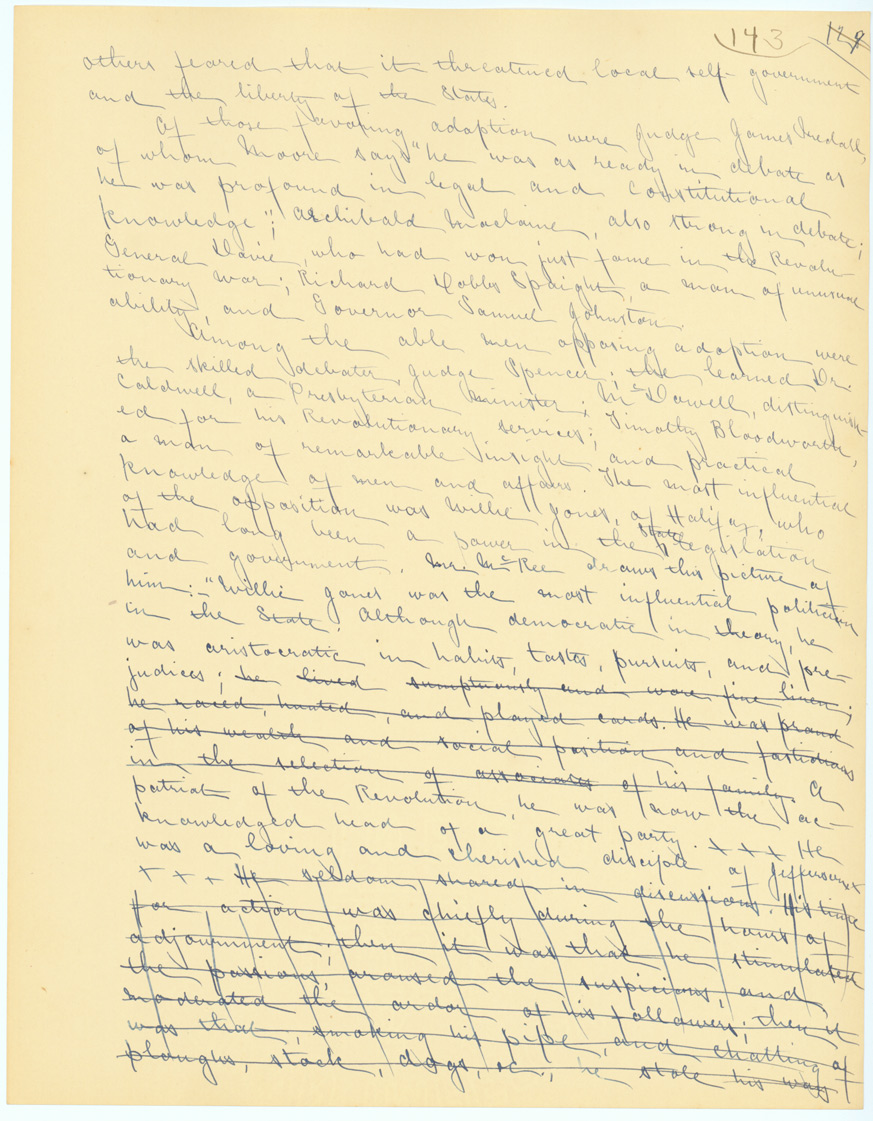 143 129
others feared that it threatened local self-government
and the liberty of the States.
Of those favoring adoption were Judge James Iredell,
of whom Moore says "he was as ready in debate as
he was profound in legal and Constitutional
knowledge"; Archibald Maclaine, also strong in debate;
General Davie, who had won just fame in the Revolu-
tionary war; Richard Dobbs Spaight, a man of unusual
ability, and Governor Samuel Johnston.
Among the able men opposing adoption were
the skilled debater, Judge Spencer; the learned Dr.
Caldwell, a Presbyterian minister; McDowell, distinguish-
ed for his Revolutionary services; Timothy Bloodworth,
a man of remarkable insight and practical
knowledge of men and affairs. The most influential
of the opposition was Willie Jones, of Halifax, who
had long been a power in the State legislation
and government. Mr. McRee draws this picture of
him:- "Willie Jones was the most influential politician
in the State. Although democratic in theory, he
was aristocratic in habits, tastes, pursuits, and pre-
judices; he lived sumptuously and wore fine linen;
he raced, hunted, and played cards. He was proud
of his wealth and social position and fastidious
in the selection of associates of his family. A
patriot of the Revolution, he was now the ac-
knowledged head of a great party. + + + He
was a loving and cherished disciple of Jefferson + +
+ + + He seldom shared in discussions. His time
for action was chiefly during the hours of
adjournment; then it was that he stimulated
the passions, aroused the suspicions, and
moderated the ardor of his followers; then it
was that, smoking his pipe, and chatting of
ploughs, stock, dogs, &c., he stole his way